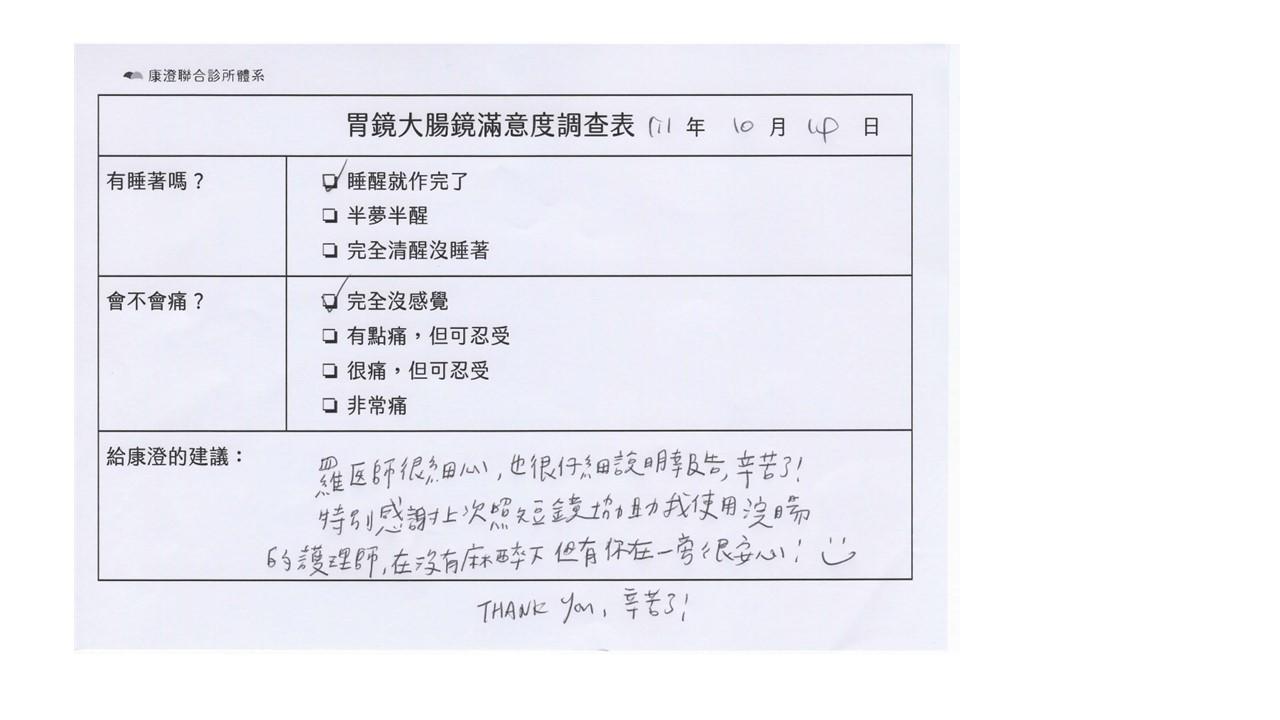 康澄聯合診所體系
胃鏡大腸鏡滿意度調查表 111 年 10 月 14 日
有睡著嗎？
睡醒就作完了
半夢半醒
完全清醒沒睡著
會不會痛？
完全沒感覺
有點痛，但可忍受
很痛，但可忍受
非常痛
給康澄的建議：
羅医師很細心,也很仔細說明報告,辛苦了!
特別感謝上次照短鏡協助我使用浣腸
的護理師,在沒有麻醉下但有你在一旁很安心!
THANK You, 辛苦了!